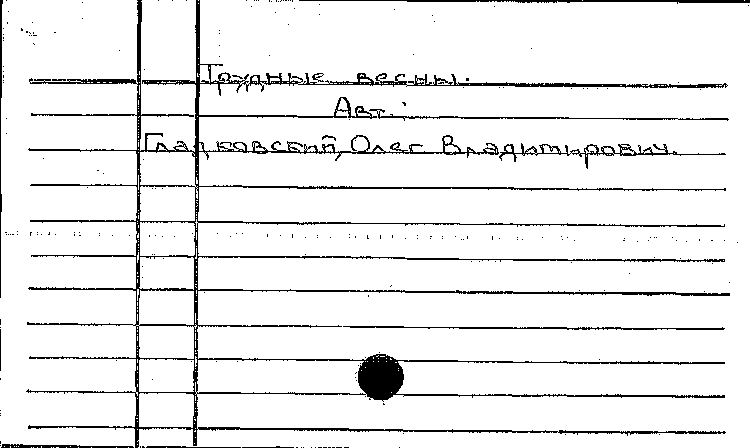 Трудные весны.
Авт.:
Гладковский, Олег Владимирович.